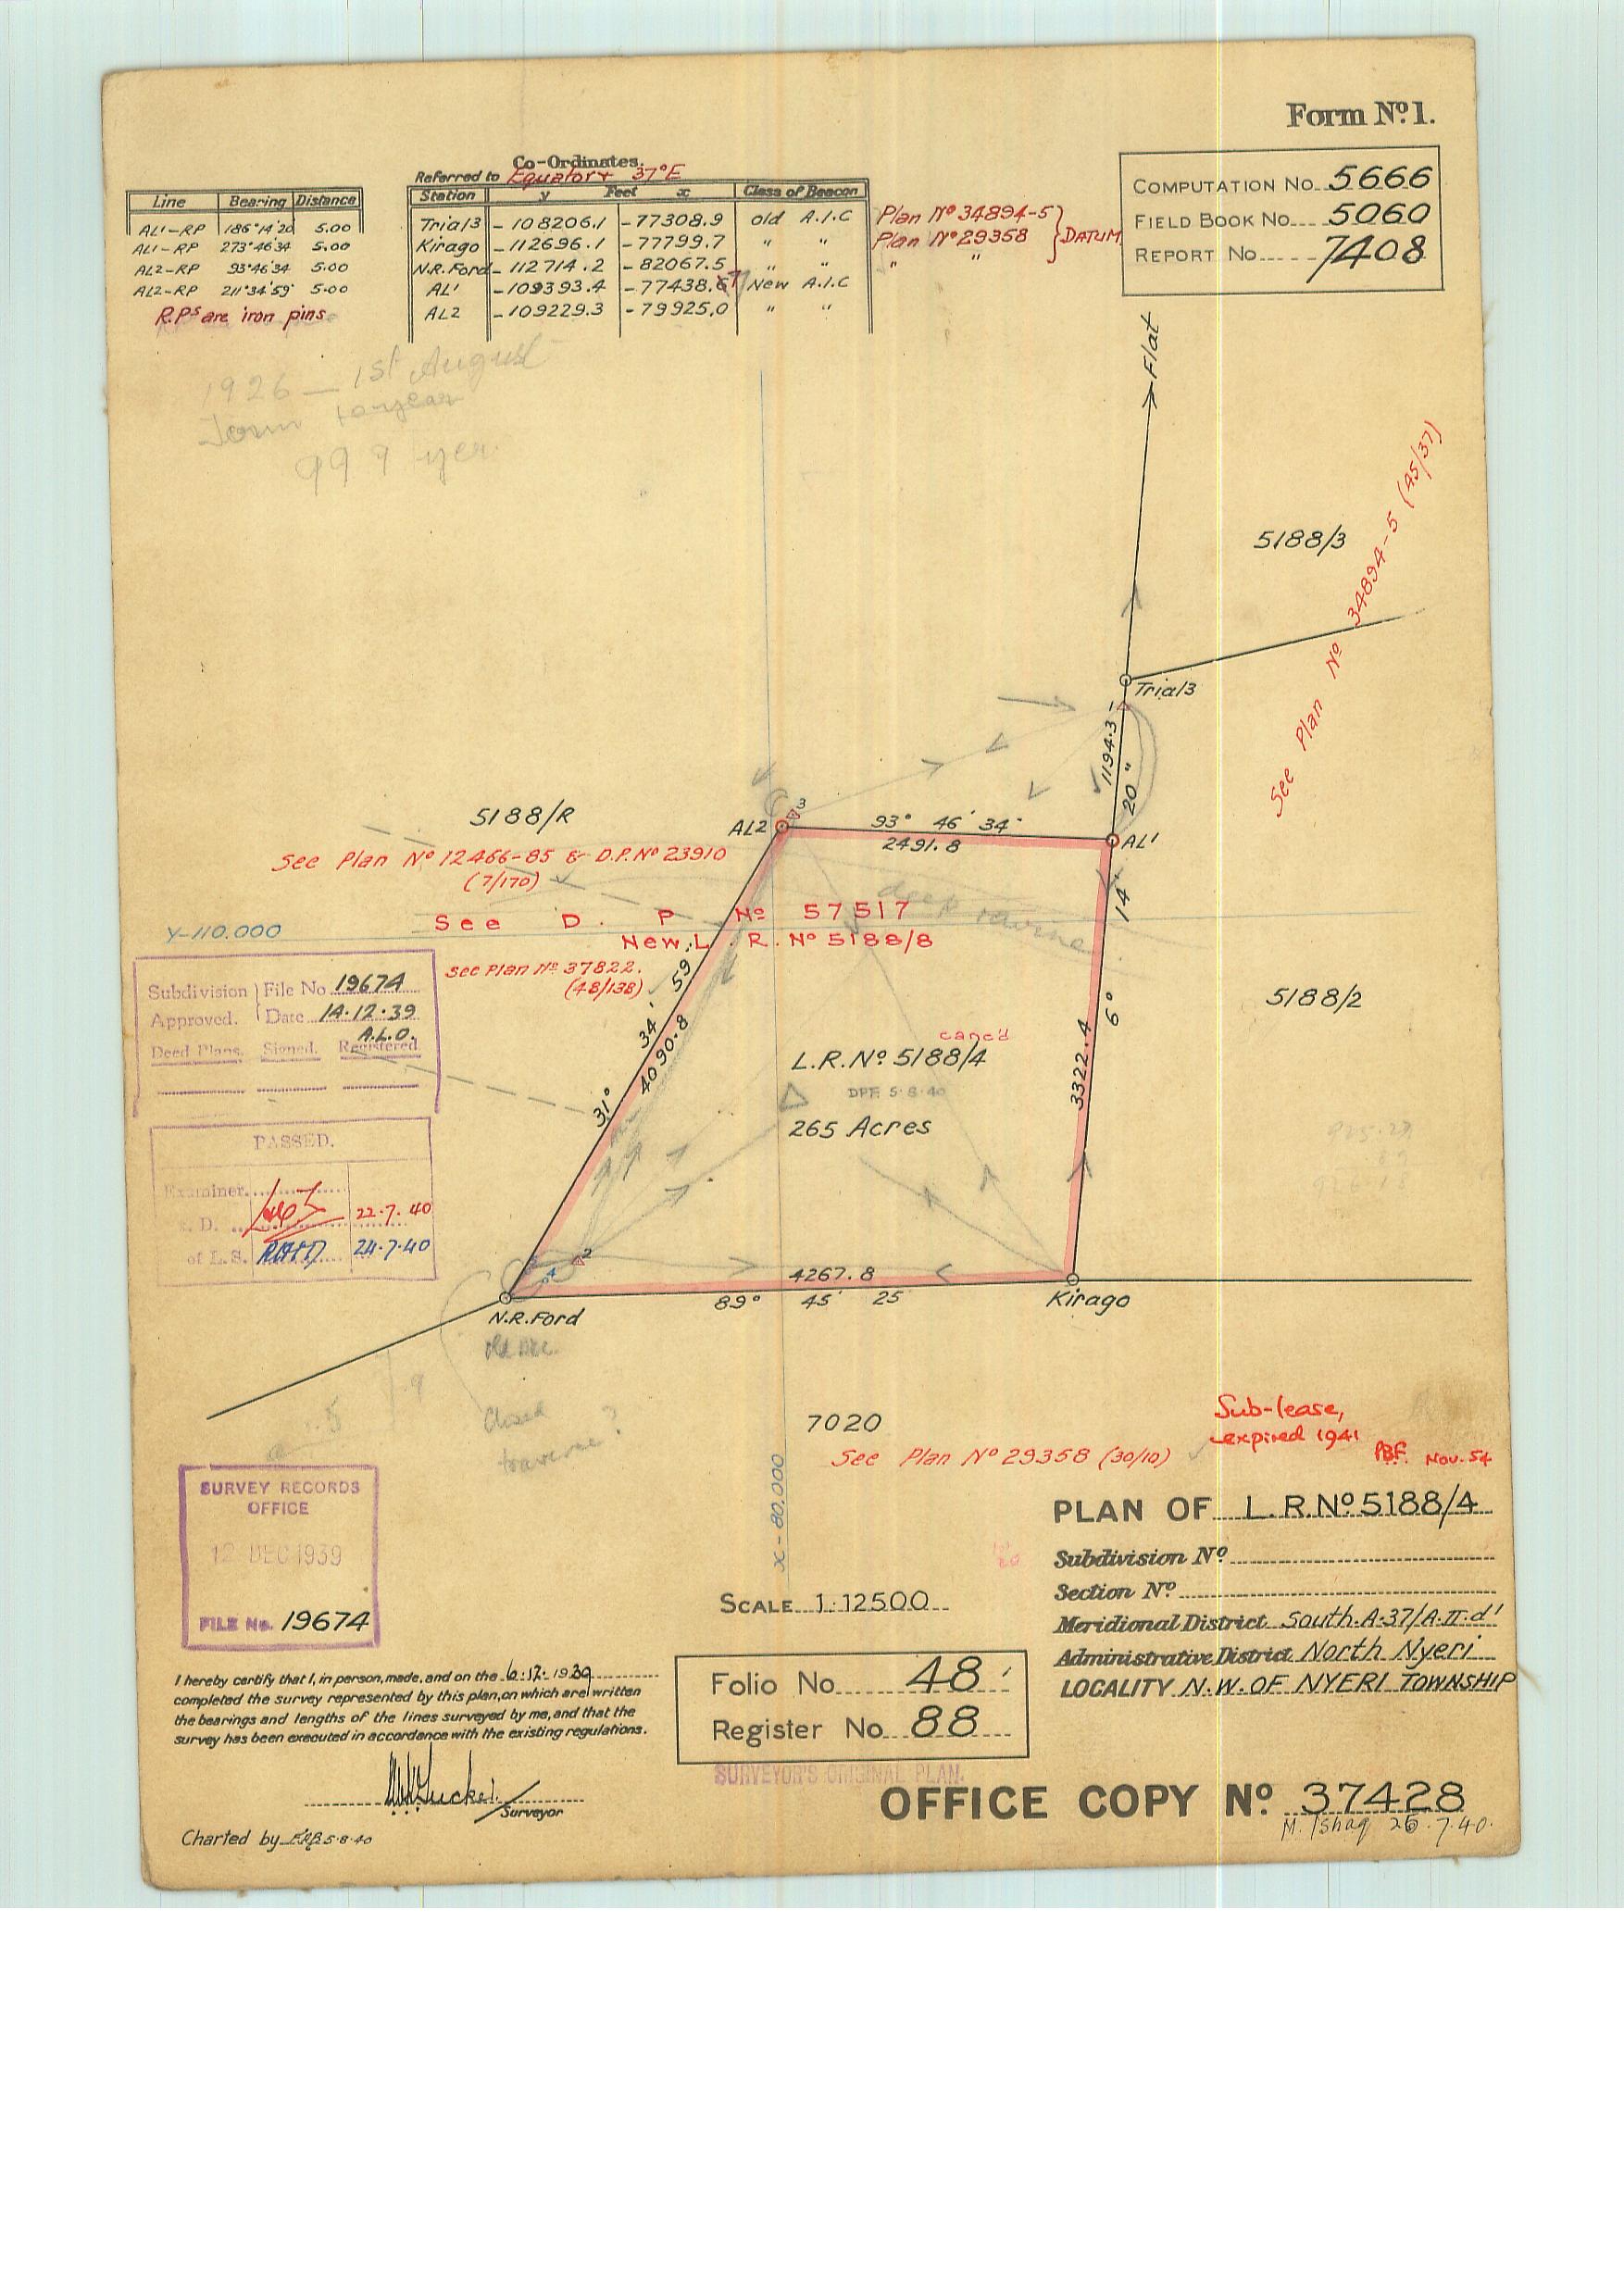 Form Nº 1.
COMPUTATION No. 5666
FIELD BOOK No. 5060
REPORT No. 7408
Co-Ordinates.
Referred to Equator & 37°E
Line Bearing Distance
AL1-RP 186°14'20 5.00
AL1-RP 273°46'34 5.00
AL2-RP 93°46'34 5.00
AL2-RP 211°34'59" 5.00
R.Ps are iron pins.
Station y Feet x Class of Beacon
Trial3 -108206.1 -77308.9 old A.I.C
Kirago -112696.1 -77799.7 " "
N.R.Ford -112714.2 -82067.5 " "
AL1 -109393.4 -77438.67 New A.I.C
AL2 -109229.3 -79925.0 " "
Plan Nº 34894-5
Plan Nº 29358
" "
DATUM
1926 — 1st August
Term
999 yer
Flat
5188/3
See Plan Nº 34894-5 (45/37)
Trial3
1194.3
20"
AL1
14'
6°
3322.4
5188/R
AL2
3
93° 46' 34"
2491.8
See Plan Nº 12466-85 & D.P. Nº 23910
(7/170)
deep ravine
See D. P Nº 57517
New L. R. Nº 5188/8
Y-110.000
see Plan Nº 37822.
(48/138)
31° 34' 59
4090.8
5188/2
Subdivision Approved.
File No 19674
Date 14.12.39
A.L.O.
Deed Plans. Signed. Registered.
canc'd
L.R. Nº 5188/4
DPF. 5.8.40
265 Acres
PASSED.
Examiner
22.7.40
of L.S. 24.7.40
2
4
4267.8
89° 45' 25"
N.R.Ford
Kirago
Closed
traverse?
7020
See Plan Nº 29358 (30/10)
x - 80.000
Sub-lease,
expired 1941
Nov. 54
SURVEY RECORDS
OFFICE
12 DEC 1939
FILE No. 19674
PLAN OF L.R. Nº 5188/4
Subdivision Nº
Section Nº
Meridional District South.A-37/A.II.d1
Administrative District North Nyeri
LOCALITY N.W. OF NYERI TOWNSHIP
SCALE 1:12500
Folio No. 48
Register No. 88
I hereby certify that I, in person, made, and on the 6.12.1939
completed the survey represented by this plan, on which are written
the bearings and lengths of the lines surveyed by me, and that the
survey has been executed in accordance with the existing regulations.
Surveyor
Charted by 5.8.40
SURVEYOR'S ORIGINAL PLAN.
OFFICE COPY Nº 37428
M. Ishaq 26.7.40.